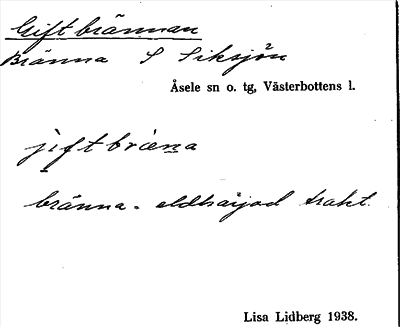 Giftbrännan
Bränna S Siksjön
Åsele sn o. tg, Västerbottens l.
jiftbräna
bränna - eldhärjad trakt.
Lisa Lidberg 1938.